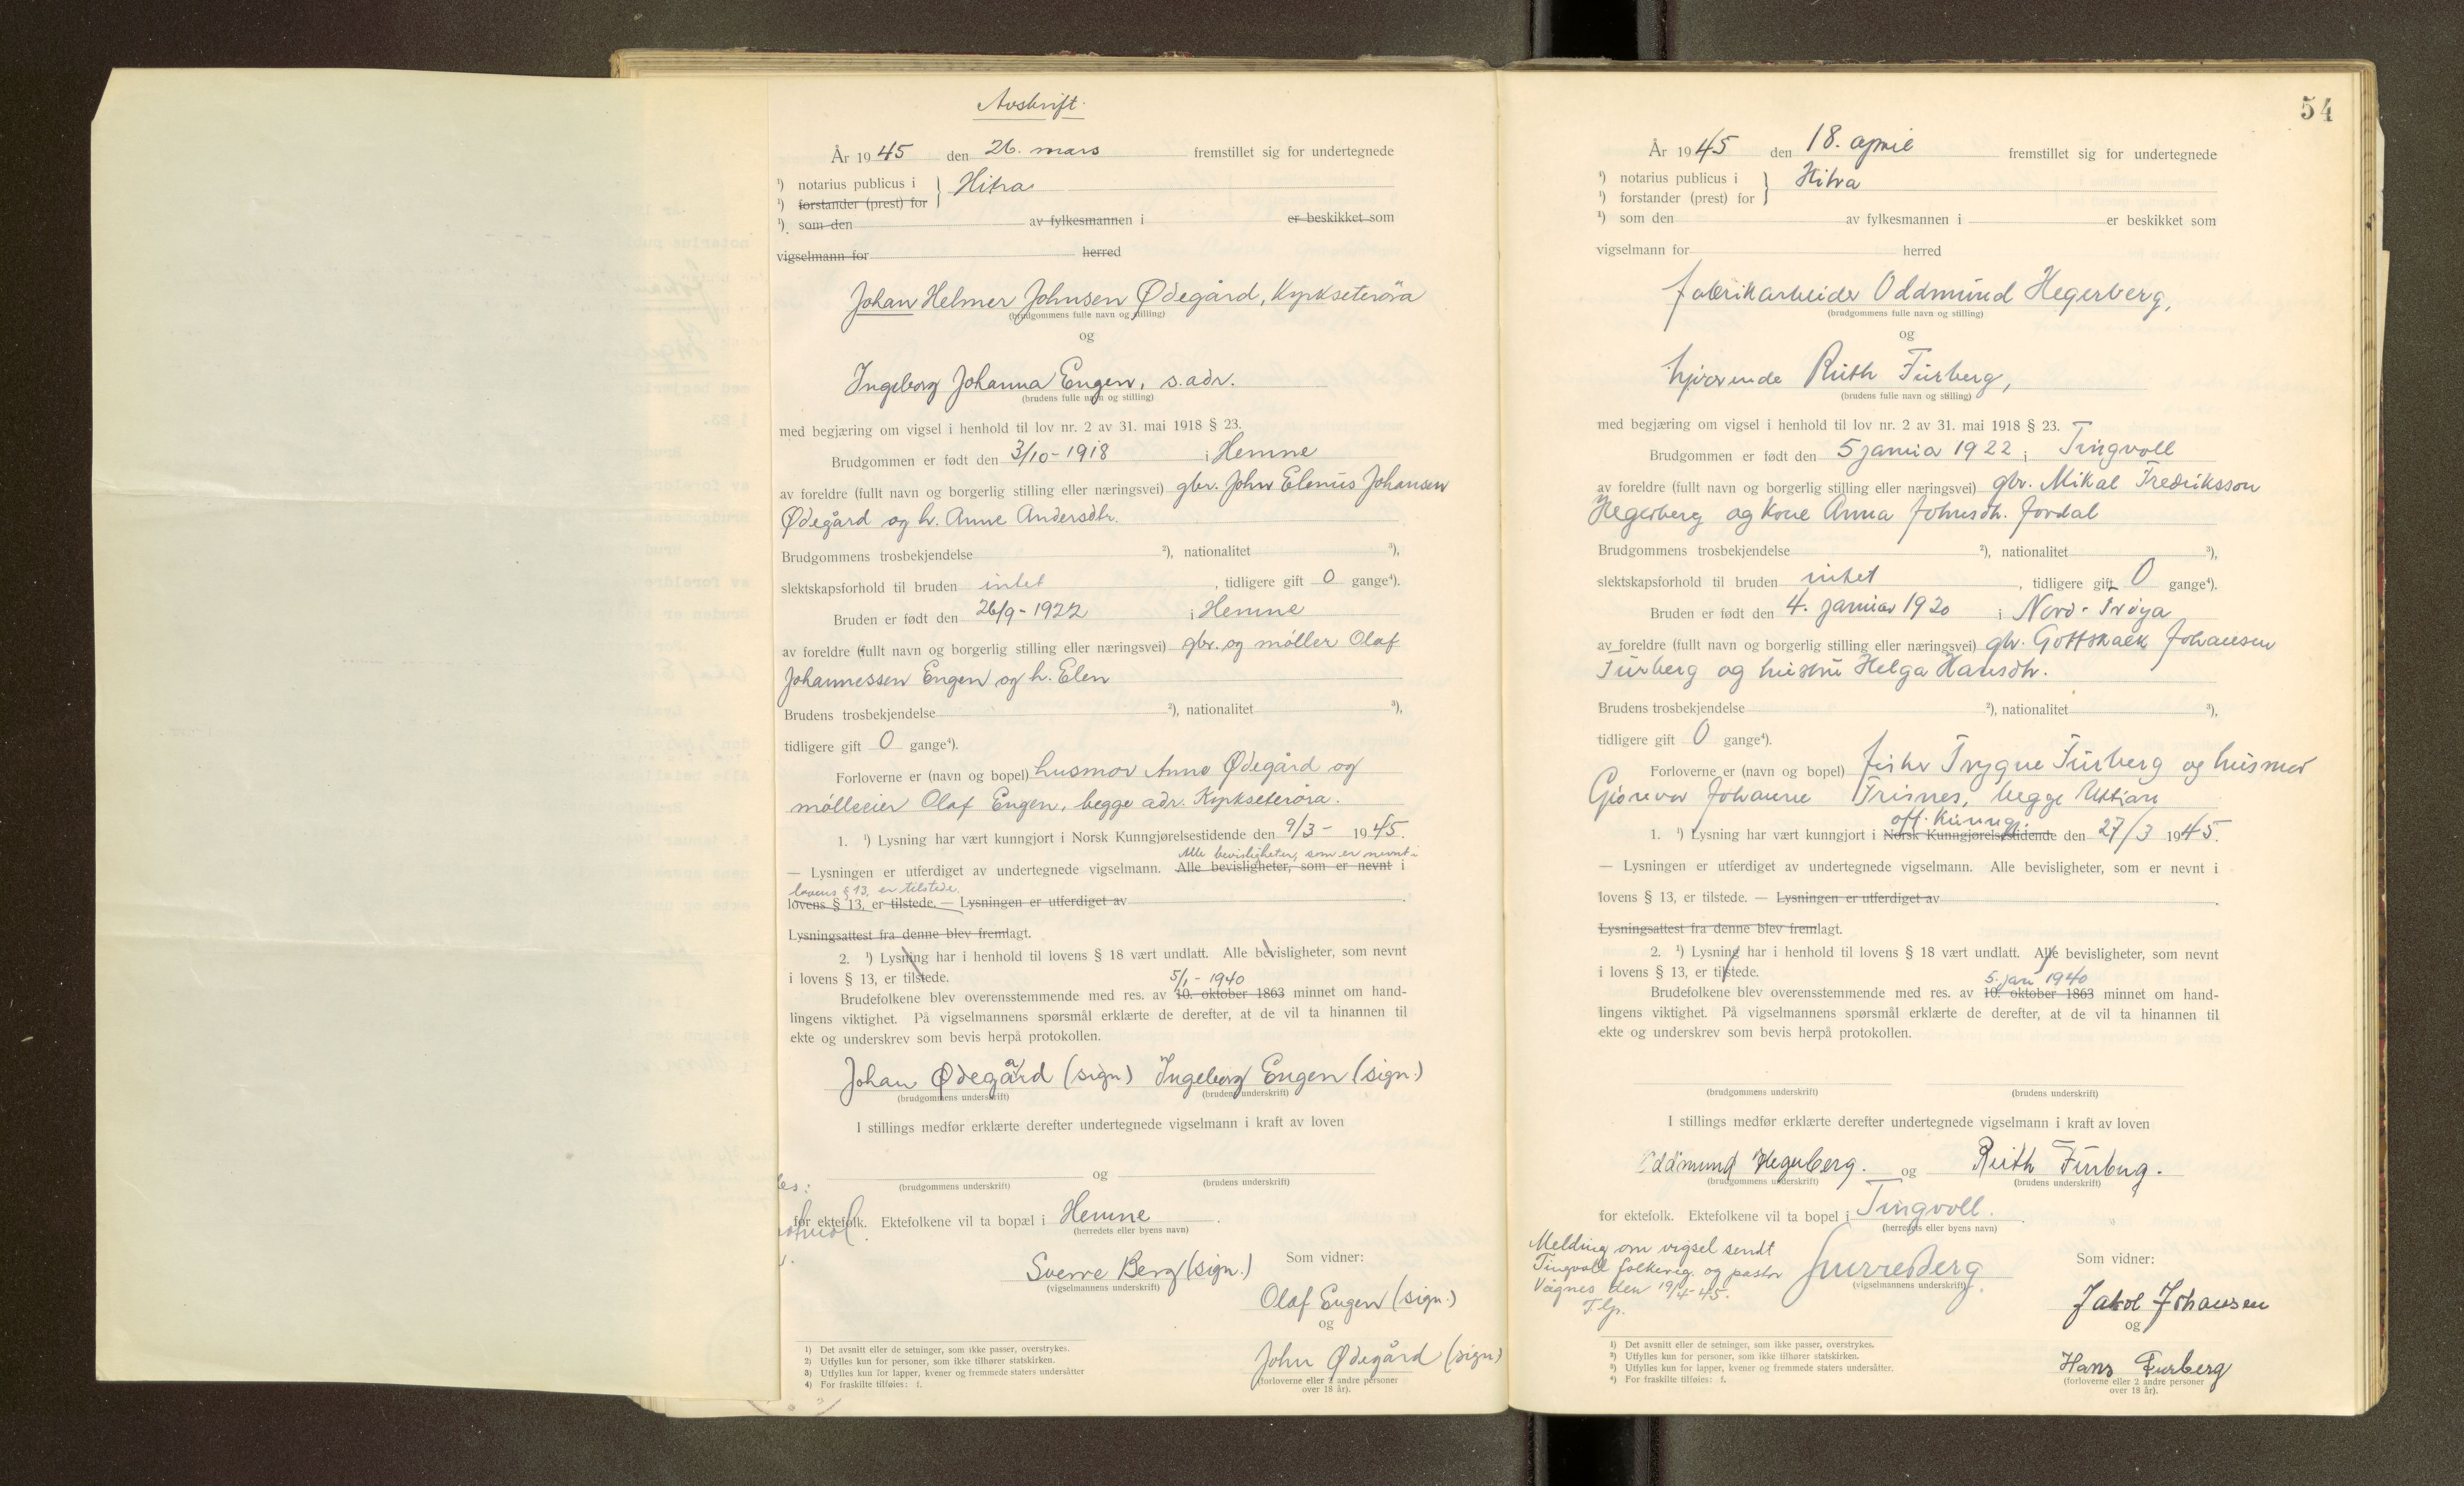 Avskrift.
År 1945 den 26. mars fremstillet sig for undertegnede
¹) notarius publicus i } Hitra
¹) forstander (prest) for
¹) som den av fylkesmannen i er beskikket som
vigselmann for herred
Johan Helmer Johnsen Ødegård, Kyrksæterøra
(brudgommens fulle navn og stilling)
og
Ingeborg Johanna Engen, s.adr.
(brudens fulle navn og stilling)
med begjæring om vigsel i henhold til lov nr. 2 av 31. mai 1918 § 23.
Brudgommen er født den 3/10-1918 i Hemne
av foreldre (fullt navn og borgerlig stilling eller næringsvei) gbr. John Elenius Johansen
Ødegård og h. Anne Andersdtr.
Brudgommens trosbekjendelse ²), nationalitet ³),
slektskapsforhold til bruden intet, tidligere gift 0 gange⁴).
Bruden er født den 26/9-1922 i Hemne
av foreldre (fullt navn og borgerlig stilling eller næringsvei) gbr. og møller Olaf
Johannessen Engen og h. Elen
Brudens trosbekjendelse ²), nationalitet ³),
tidligere gift 0 gange⁴).
Forloverne er (navn og bopel) husmor Anne Ødegård og
mølleeier Olaf Engen, begge adr. Kyrkseterøra.
1. ¹) Lysning har vært kunngjort i Norsk Kunngjørelsestidende den 9/3- 1945.
Alle bevisligheter, som er nevnt i
— Lysningen er utferdiget av undertegnede vigselmann. Alle bevisligheter, som er nevnt i
lovens § 13, er tilstede.
lovens § 13, er tilstede. — Lysningen er utferdiget av
Lysningsattest fra denne blev fremlagt.
2. ¹) Lysning har i henhold til lovens § 18 vært undlatt. Alle bevisligheter, som nevnt
i lovens § 13, er tilstede.
5/1-1940
Brudefolkene blev overensstemmende med res. av 10. oktober 1863 minnet om hand-
lingens viktighet. På vigselmannens spørsmål erklærte de derefter, at de vil ta hinannen til
ekte og underskrev som bevis herpå protokollen.
Johan Ødegård (sign) Ingeborg Engen (sign.)
(brudgommens underskrift) (brudens underskrift)
I stillings medfør erklærte derefter undertegnede vigselmann i kraft av loven
og
(brudgommens underskrift) (brudens underskrift)
for ektefolk. Ektefolkene vil ta bopæl i Hemne.
(herredets eller byens navn)
Sverre Berg (sign.) Som vidner:
(vigselmannens underskrift)
Olaf Engen (sign.)
og
John Ødegård (sign)
(forloverne eller 2 andre personer
over 18 år).
1) Det avsnitt eller de setninger, som ikke passer, overstrykes.
2) Utfylles kun for personer, som ikke tilhører statskirken.
3) Utfylles kun for lapper, kvener og fremmede staters undersåtter
4) For fraskilte tilføies: f.
54
År 1945 den 18. april fremstillet sig for undertegnede
¹) notarius publicus i } Hitra
¹) forstander (prest) for
¹) som den av fylkesmannen i er beskikket som
vigselmann for herred
fabrikarbeider Oddmund Hegerberg,
(brudgommens fulle navn og stilling)
og
hjvarende Ruth Furberg,
(brudens fulle navn og stilling)
med begjæring om vigsel i henhold til lov nr. 2 av 31. mai 1918 § 23.
Brudgommen er født den 5 januar 1922 i Tingvoll
av foreldre (fullt navn og borgerlig stilling eller næringsvei) gbr. Mikal Fredriksson
Hegerberg og kone Anna Johnsdtr. Jordal
Brudgommens trosbekjendelse ²), nationalitet ³),
slektskapsforhold til bruden intet, tidligere gift 0 gange⁴).
Bruden er født den 4. januar 1920 i Nord-Frøya
av foreldre (fullt navn og borgerlig stilling eller næringsvei) gbr. Gottskalk Johansen
Furberg og hustru Helga Hansdtr.
Brudens trosbekjendelse ²), nationalitet ³),
tidligere gift 0 gange⁴).
Forloverne er (navn og bopel) fisker Trygve Furberg og husmor
Johanne begge Uttian
off. kunng.
1. ¹) Lysning har vært kunngjort i Norsk Kunngjørelsestidende den 27/3 1945.
— Lysningen er utferdiget av undertegnede vigselmann. Alle bevisligheter, som er nevnt i
lovens § 13, er tilstede. — Lysningen er utferdiget av
Lysningsattest fra denne blev fremlagt.
2. ¹) Lysning har i henhold til lovens § 18 vært undlatt. Alle bevisligheter, som nevnt
i lovens § 13, er tilstede.
5. jan 1940
Brudefolkene blev overensstemmende med res. av 10. oktober 1863 minnet om hand-
lingens viktighet. På vigselmannens spørsmål erklærte de derefter, at de vil ta hinannen til
ekte og underskrev som bevis herpå protokollen.
(brudgommens underskrift) (brudens underskrift)
I stillings medfør erklærte derefter undertegnede vigselmann i kraft av loven
Oddmund Hegerberg. og Ruth Furberg.
(brudgommens underskrift) (brudens underskrift)
for ektefolk. Ektefolkene vil ta bopel i Tingvoll.
(herredets eller byens navn)
Melding om vigsel sendt
Tingvoll folkereg. og pastor
Vågnes den 19/4-45.
Sverre Berg Som vidner:
(vigselmannens underskrift)
Jakob Johansen
og
Hans Furberg
(forloverne eller 2 andre personer
over 18 år).
¹) Det avsnitt eller de setninger, som ikke passer, overstrykes.
²) Utfylles kun for personer, som ikke tilhører statskirken.
³) Utfylles kun for lapper, kvener og fremmede staters undersåtter.
⁴) For fraskilte tilføies: f.